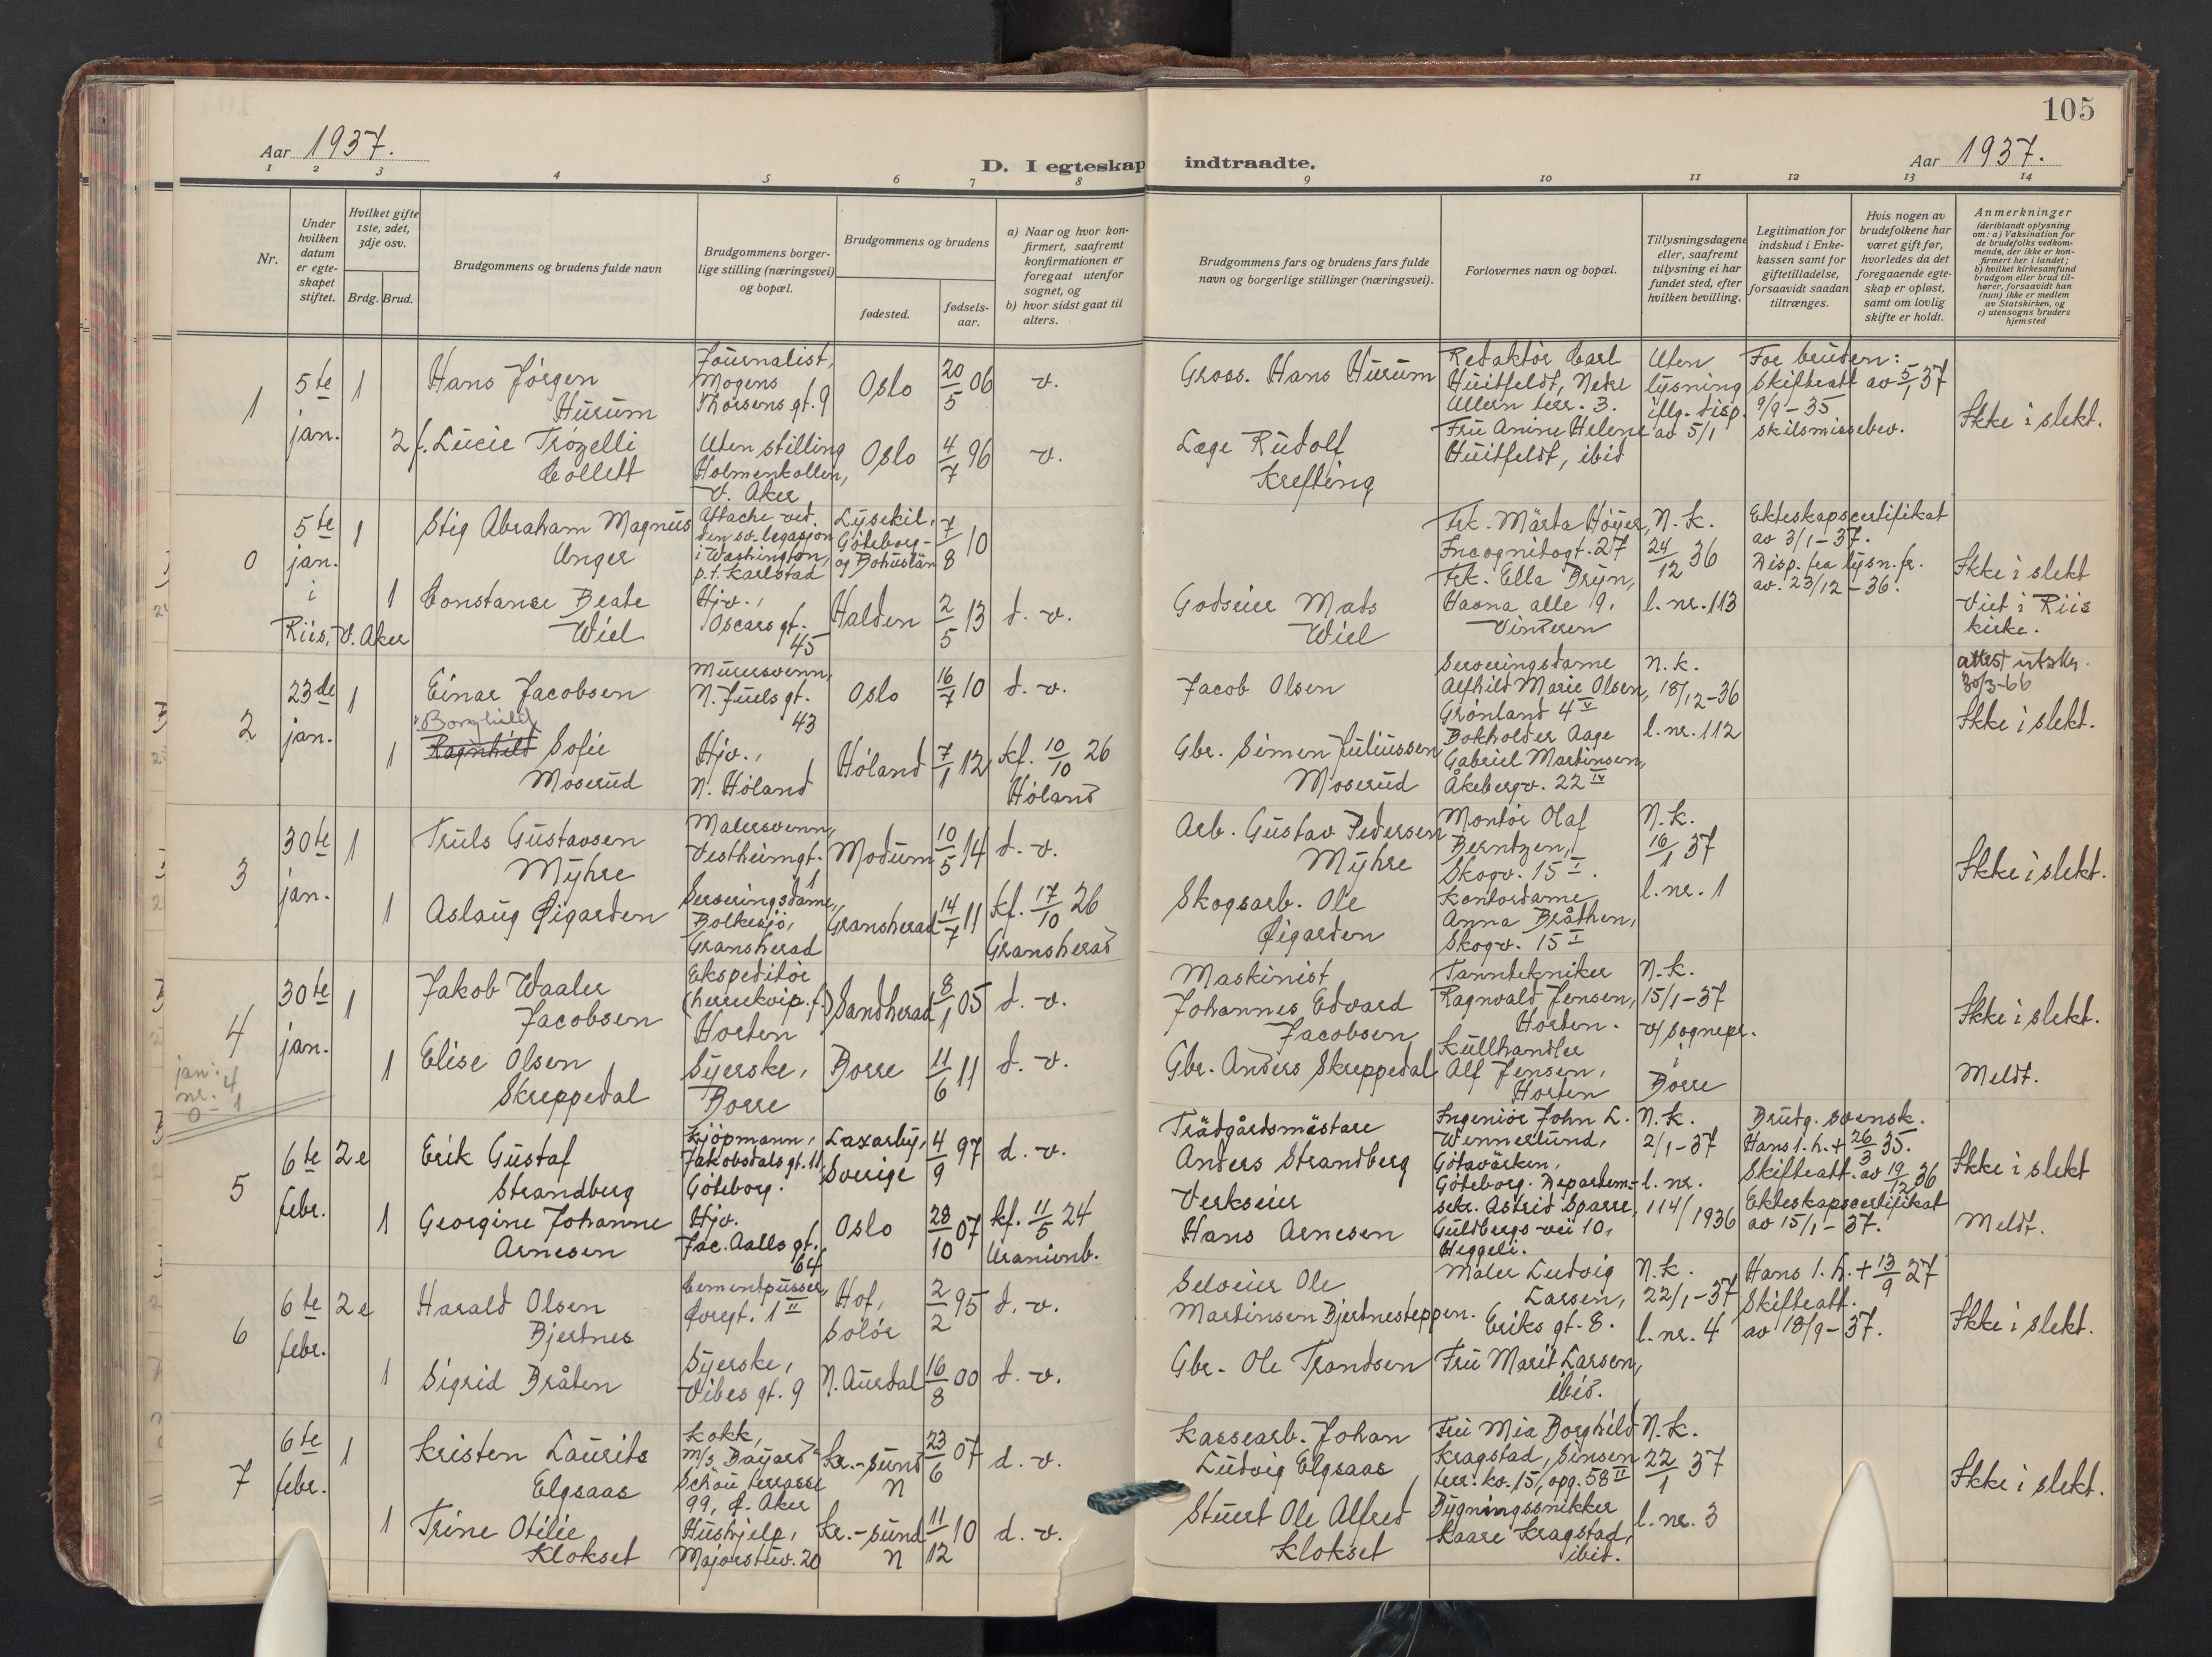 105
Aar 1937.
D. I egteskap indtraadte.
Aar 1937.
1 2 3 4 5 6 7 8 9 10 11 12 13 14
Nr.
Under hvilken datum er egteskapet stiftet.
Hvilket gifte 1ste, 2det, 3dje osv.
Brdg. Brud.
Brudgommens og brudens fulde navn
Brudgommens borgerlige stilling (næringsvei) og bopæl.
Brudgommens og brudens
fødested.
fødselsaar.
a) Naar og hvor konfirmert, saafremt konfirmationen er foregaat utenfor sognet, og
b) hvor sidst gaat til alters.
Brudgommens fars og brudens fars fulde navn og borgerlige stillinger (næringsvei).
Forlovernes navn og bopæl.
Tillysningsdagene eller, saafremt tillysning ei har fundet sted, efter hvilken bevilling.
Legitimation for indskud i Enkekassen samt for giftetilladelse, forsaavidt saadan tiltrænges.
Hvis nogen av brudefolkene har været gift før, hvorledes da det foregaaende egteskap er opløst, samt om lovlig skifte er holdt.
Anmerkninger (deriblandt oplysning om: a) Vaksination for de brudefolks vedkommende, der ikke er konfirmert her i landet; b) hvilket kirkesamfund brudgom eller brud tilhører, forsaavidt han (hun) ikke er medlem av Statskirken, og c) utensogns bruders hjemsted
1
5te jan.
1
Hans Jörgen Hurum
Journalist, Mogens Thorsens gt. 9
Oslo
20/5 06
v.
Gross. Hans Hurum
Redaktör Carl Huitfeldt, Nedre Ullern terr. 3.
Uten lysning iflg. disp. av 5/1
For bruden: Skifteatt av 5/1 37
9/9-35 skilsmissebev.
Ikke i slekt.
2 f. Lucie Trözelli Collett
Uten stilling Holmenkollen, V. Aker
Oslo
4/7 96
v.
Læge Rudolf Krefting
Fru Anine Helene Huitfeldt, ibid
0
5te jan. i Riis, V. Aker
1
Stig Abraham Magnus Unger
Attache ved den sv. legasjon i Washington, p.t. Karlstad
Lysekil, Göteborg- og Bohuslän
7/8 10
Frk. Märta Höyer, Incognitogt. 27
N. k. 24/12 36
Ekteskapscertifikat av 3/1-37.
Disp. fra lysn.fr. av 23/12-36.
Ikke i slekt
Viet i Riis kirke.
1
Constance Beate Wiel
Hjv., Oscars gt. 45
Halden
2/5 13
d. v.
Godseier Mads Wiel
Frk. Ella Bryn, Haavna alle 19, Vinderen
l. nr. 113
2
23de jan.
1
Einar Jacobsen
Murersvenn, N. Juels gt. 43
Oslo
16/7 10
d. v.
Jacob Olsen
Serveringsdame Alfhild Marie Olsen, Grönland 4 V
N. k. 18/12-36
attest utskr. 30/3-66
Ikke i slekt.
1
Borghild
Ragnhild Sofie Moserud
Hjv., N. Höland
Höland
7/1 12
Kf. 10/10 26 Höland
Gbr. Simen Juliussen Moserud
Bokholder Aage Gabriel Martinsen, Åkebergv. 22 IV
l. nr. 112
3
30te jan.
1
Truls Gustavsen Myhre
Malersvenn, Vestheimgt. 1
Modum
10/5 14
d. v.
Arb. Gustav Pedersen Myhre
Montör Olaf Berntzen, Skogv. 15 I.
N. k. 16/1 37
Ikke i slekt.
1
Aslaug Øigarden
Serveringsdame, Bolkesjö, Gransherad
Gransherad
14/7 11
Kf. 17/10 26 Gransherad
Skogsarb. Ole Øigarden
Kontordame Anna Bråthen, Skogv. 15 I
l. nr. 1
4
30te jan.
1
Jakob Waaler Jacobsen
Ekspeditör (herreekvip.f.) Horten
Sandherad
8/1 05
d. v.
Maskinist Johannes Edvard Jacobsen
Tanntekniker Ragnvald Jensen, Horten.
N. k. 15/1-37 v/ sognepr. i Borre
Ikke i slekt.
1
Elise Olsen Skreppedal
Syerske, Borre
Borre
11/6 11
d. v.
Gbr. Anders Skreppedal
Kullhandler Alf Jensen, Horten
Meldt.
jan: nr. 4
0 - 1
5
6te febr.
2e
Erik Gustaf Strandberg
Kjöpmann, Jakobsdals gt. 11, Göteborg.
Laxarby, Sverige
4/9 97
d. v.
Trädgårdsmästare Anders Strandberg
Ingeniör John L. Wennerlund, Götavärken, Göteborg.
N. k. 2/1-37
Brudg. svensk.
Hans 1. h. + 26/3 35.
Skifteatt. av 19/12 36
Ekteskapscertifikat av 15/1-37.
Ikke i slekt
1
Georgine Johanne Arnesen
Hjv. Jac. Aalls gt. 64
Oslo
28/10 07
kf. 11/5 24 Uranienb.
Verkseier Hans Arnesen
Departem.sekr. Astrid Sparre, Guldbergs vei 10, Heggeli.
l. nr. 114/1936
Meldt.
6
6te febr.
2e
Harald Olsen Bjertnes
Cementpusser, Övregt. 1 II
Hof, Solör
2/2 95
d. v.
Selveier Ole Martinsen Bjertnesteppen.
Maler Ludvig Larsen, Eriks gt. 8.
N. k. 22/1-37
l. nr. 4
Hans 1. h. + 13/9 27
Skifteatt. av 18/9-37.
Ikke i slekt.
1
Sigrid Bråten
Syerske, Vibes gt. 9
N. Aurdal
16/8 00
d. v.
Gbr. Ole Trondsen
Fru Marit Larsen, ibid.
7
6te febr.
1
Kristen Laurits Elgsaas
Kokk, m/s Bayard Schou terrasse 99, Ø. Aker
Kr.-sund N
23/6 07
d. v.
Kassearb. Johan Ludvig Elgsaas
Fru Mia Borghild Kragstad, Sinsen terr: kv. 15, opg. 58 II
N. k. 22/1 37
Ikke i slekt.
1
Trine Otilie Klokset
Hushjelp, Majorstuv. 20
Kr.-sund N
11/12 10
d. v.
Stuert Ole Alfred Klokset
Bygningssnikker Kaare Kragstad, ibid.
l. nr. 3